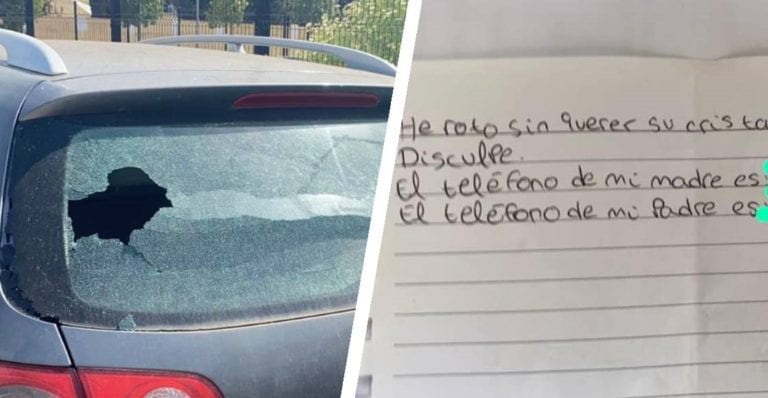 He roto sin querer su crista
Disculpe.
El teléfono de mi madre es:
El teléfono de mi Padre es